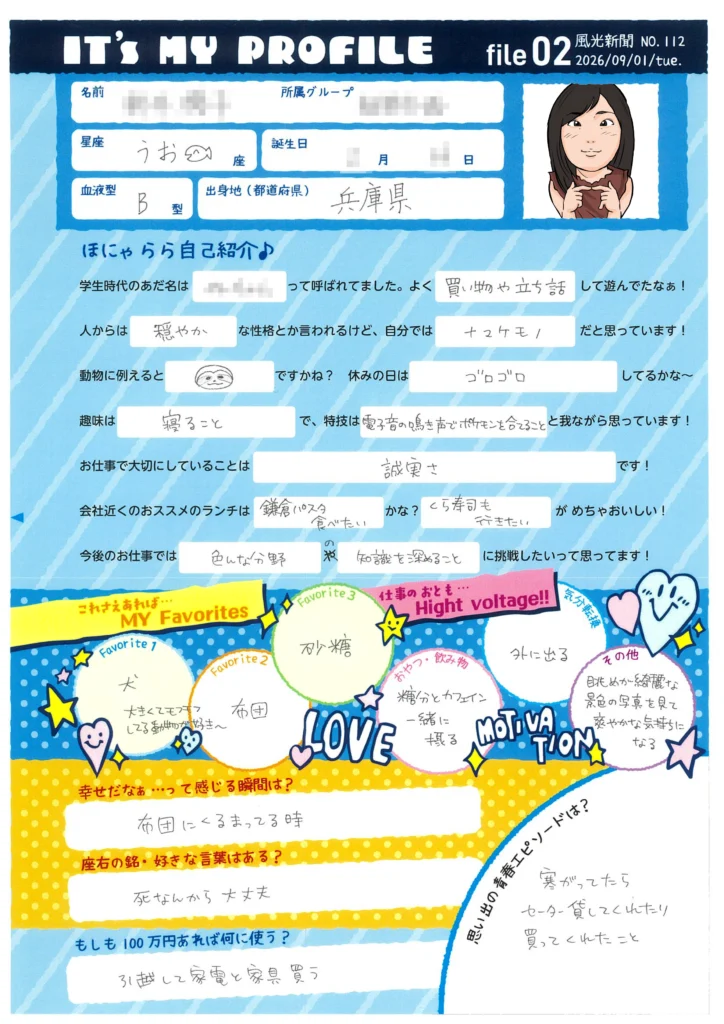 IT's MY PROFILE file 02 風光新聞 NO. 112
2026/09/01/tue.
名前 所属グループ
星座 うお 座 誕生日 月 日
血液型 B 型 出身地（都道府県） 兵庫県
ほにゃらら自己紹介♪
学生時代のあだ名は って呼ばれてました。よく 買い物や立ち話 して遊んでたなぁ！
人からは 穏やか な性格とか言われるけど、自分では ナマケモノ だと思っています！
動物に例えると ですかね？ 休みの日は ゴロゴロ してるかな〜
趣味は 寝ること で、特技は 電子音の鳴き声でポケモンを当てること と我ながら思っています！
お仕事で大切にしていることは 誠実さ です！
会社近くのおススメのランチは 鎌倉パスタ食べたい かな？ くら寿司も行きたい が めちゃおいしい！
今後のお仕事では 色んな分野 の 知識を深めること に挑戦したいって思ってます！
これさえあれば…
MY Favorites
Favorite 1
犬
大きくてモフモフ
してる動物が好き〜
Favorite 2
布団
Favorite 3
砂糖
仕事のおとも…
Hight voltage!!
おやつ・飲み物
糖分とカフェイン
一緒に
摂る
気分転換
外に出る
その他
眺めが綺麗な
景色の写真を見て
爽やかな気持ちに
なる
LOVE
MOTIVATION
幸せだなぁ…って感じる瞬間は？
布団にくるまってる時
座右の銘・好きな言葉はある？
死なんから大丈夫
もしも100万円あれば何に使う？
引越して家電と家具買う
思い出の青春エピソードは？
寒がってたら
セーター貸してくれたり
買ってくれたこと